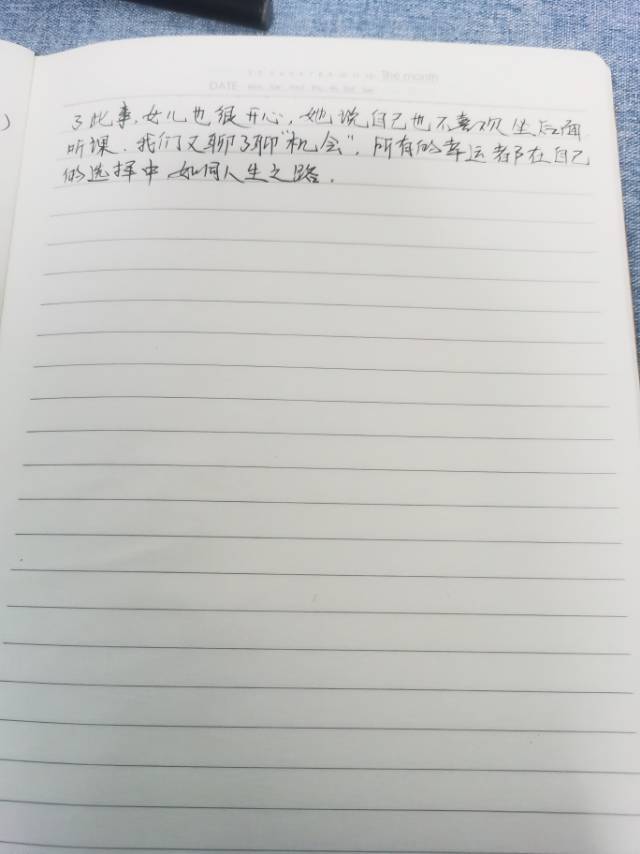 The month
DATE
了此事,女儿也很开心,她说自己也不喜欢坐后面
听课.我们又聊了聊“机会”.所有的幸运都在自己
的选择中.如何人生之路.